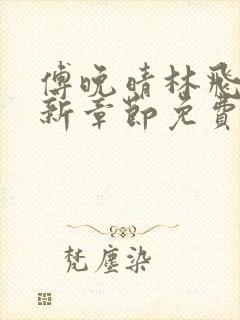 傅晚晴林飛
新章節免費
梵塵染